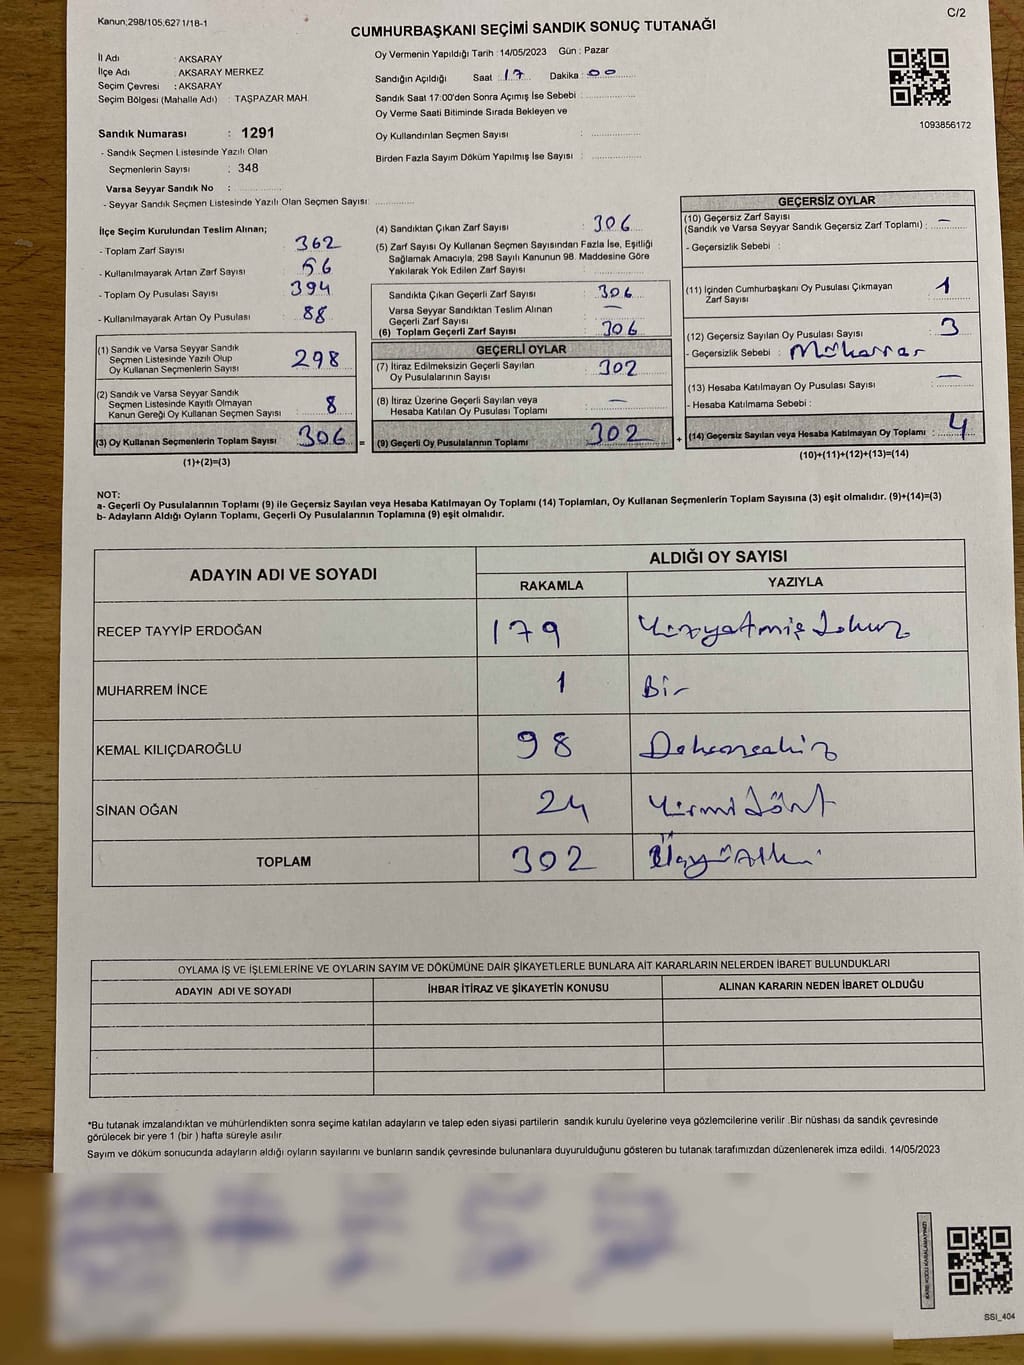 Kanun;298/105,627 1/18-1
C/2
CUMHURBAŞKANI SEÇİMİ SANDIK SONUÇ TUTANAĞI
İl Adı : AKSARAY
İlçe Adı : AKSARAY MERKEZ
Seçim Çevresi : AKSARAY
Seçim Bölgesi (Mahalle Adı) : TAŞPAZAR MAH.
Sandık Numarası : 1291
- Sandık Seçmen Listesinde Yazılı Olan
Seçmenlerin Sayısı : 348
Varsa Seyyar Sandık No :
- Seyyar Sandık Seçmen Listesinde Yazılı Olan Seçmen Sayısı:
Oy Vermenin Yapıldığı Tarih : 14/05/2023 Gün : Pazar
Sandığın Açıldığı Saat : 17 Dakika : 00
Sandık Saat 17:00'den Sonra Açımış İse Sebebi :
Oy Verme Saati Bitiminde Sırada Bekleyen ve
Oy Kullandırılan Seçmen Sayısı :
Birden Fazla Sayım Döküm Yapılmış İse Sayısı :
1093856172
İlçe Seçim Kurulundan Teslim Alınan;
- Toplam Zarf Sayısı 362
- Kullanılmayarak Artan Zarf Sayısı 56
- Toplam Oy Pusulası Sayısı 394
- Kullanılmayarak Artan Oy Pusulası 88
(1) Sandık ve Varsa Seyyar Sandık
Seçmen Listesinde Yazılı Olup
Oy Kullanan Seçmenlerin Sayısı 298
(2) Sandık ve Varsa Seyyar Sandık
Seçmen Listesinde Kayıtlı Olmayan
Kanun Gereği Oy Kullanan Seçmen Sayısı 8
(3) Oy Kullanan Seçmenlerin Toplam Sayısı 306 =
(1)+(2)=(3)
(4) Sandıktan Çıkan Zarf Sayısı 306
(5) Zarf Sayısı Oy Kullanan Seçmen Sayısından Fazla İse, Eşitliği
Sağlamak Amacıyla, 298 Sayılı Kanunun 98. Maddesine Göre
Yakılarak Yok Edilen Zarf Sayısı
Sandıkta Çıkan Geçerli Zarf Sayısı 306
Varsa Seyyar Sandıktan Teslim Alınan
Geçerli Zarf Sayısı —
(6) Toplam Geçerli Zarf Sayısı 306
GEÇERLİ OYLAR
(7) İtiraz Edilmeksizin Geçerli Sayılan
Oy Pusulasının Sayısı 302
(8) İtiraz Üzerine Geçerli Sayılan veya
Hesaba Katılan Oy Pusulası Toplamı —
(9) Geçerli Oy Pusulalarının Toplamı 302 +
GEÇERSİZ OYLAR
(10) Geçersiz Zarf Sayısı
(Sandık ve Varsa Seyyar Sandık Geçersiz Zarf Toplamı) : —
- Geçersizlik Sebebi :
(11) İçinden Cumhurbaşkanı Oy Pusulası Çıkmayan
Zarf Sayısı : 1
(12) Geçersiz Sayılan Oy Pusulası Sayısı : 3
- Geçersizlik Sebebi : Mükerrer
(13) Hesaba Katılmayan Oy Pusulası Sayısı : —
- Hesaba Katılmama Sebebi :
(14) Geçersiz Sayılan veya Hesaba Katılmayan Oy Toplamı : 4
(10)+(11)+(12)+(13)=(14)
NOT:
a- Geçerli Oy Pusulalarının Toplamı (9) ile Geçersiz Sayılan veya Hesaba Katılmayan Oy Toplamı (14) Toplamları, Oy Kullanan Seçmenlerin Toplam Sayısına (3) eşit olmalıdır. (9)+(14)=(3)
b- Adayların Aldığı Oyların Toplamı, Geçerli Oy Pusulalarının Toplamına (9) eşit olmalıdır.
ADAYIN ADI VE SOYADI
ALDIĞI OY SAYISI
RAKAMLA YAZIYLA
RECEP TAYYİP ERDOĞAN 179 Yüzyetmiş Dokuz
MUHARREM İNCE 1 Bir
KEMAL KILIÇDAROĞLU 98 Doksansekiz
SİNAN OĞAN 24 Yirmidört
TOPLAM 302 Üçyüziki
OYLAMA İŞ VE İŞLEMLERİNE VE OYLARIN SAYIM VE DÖKÜMÜNE DAİR ŞİKAYETLERLE BUNLARA AİT KARARLARIN NELERDEN İBARET BULUNDUKLARI
ADAYIN ADI VE SOYADI
İHBAR İTİRAZ VE ŞİKAYETİN KONUSU
ALINAN KARARIN NEDEN İBARET OLDUĞU
*Bu tutanak imzalandıktan ve mühürlendikten sonra seçime katılan adayların ve talep eden siyasi partilerin sandık kurulu üyelerine veya gözlemcilerine verilir .Bir nüshası da sandık çevresinde
görülecek bir yere 1 (bir ) hafta süreyle asılır
Sayım ve döküm sonucunda adayların aldığı oyların sayılarını ve bunların sandık çevresinde bulunanlara duyurulduğunu gösteren bu tutanak tarafımızdan düzenlenerek imza edildi. 14/05/2023
SSI_404